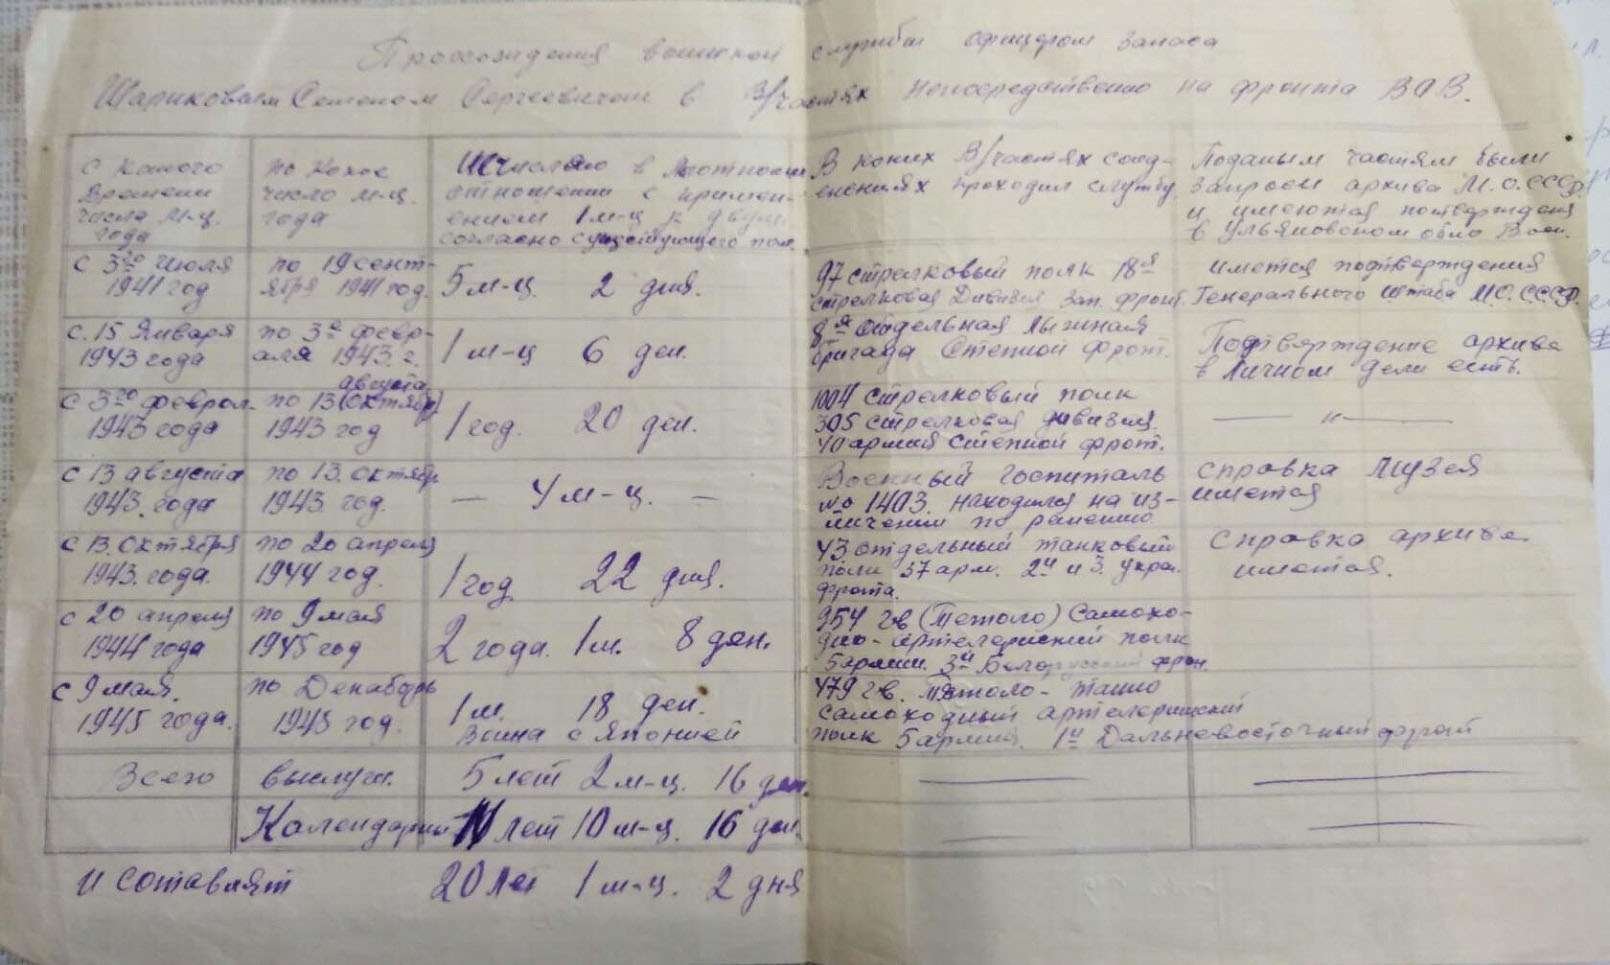 Прохождения воинской службы офицером запаса
Шариковым Семеном Сергеевичем в в/частях непосредственно на фронта ВОВ.
с какого
времени
числа м-ц.
года
по какое
число м-ц.
года
Исчисляю в льотном
отношении с примен-
ением 1 м-ц к двум
согласно существующего пол.
В каких в/частях соед-
енениях проходил службу
Поданым частям были
запросы архива М.О.СССР
и имеются потверждения
в Ульяновском обло Воен.
с 3го июля
1941 год
по 19 сент-
ября 1941 год.
5 м-ц. 2 дня.
97 стрелковый полк 18я
стрелковая Дивизия Зап. фронт.
имется подтверждения
Генерального штаба М.О.С.С.С.Р.
с. 15 января
1943 года
по 3е февр-
аля 1943 г.
1 м-ц 6 ден.
8я отдельная лыжная
бригада Степной Фронт.
Подтверждение архива
в личном деле есть.
с 3го феврал.
1943 года
августа
по 13 (октябр)
1943 год
1 год. 20 ден.
1004 стрелковый полк
305 стрелковая дивизия.
40 армия степной фронт.
— " —
с 13 августа
1943. года
по 13. октябр
1943. год.
— 4 м-ц. —
Военный госпиталь
№ 1403. находился на из-
личении по ранению
справка музея
имется
с 13. октября
1943. года.
по 20 апреля
1944 год.
1 год. 22 дня.
43 отдельный танковый
полк 37 арм. 2й и 3. укра.
фронта.
справка архива
имется.
с 20 апреля
1944 года
по 9 мая
1945 год
2 года. 1 м. 8 ден.
954 гв (Тетоло) Самохо-
дно-артелериский полк
5 армии. 3й Белорусский фрон.
с 9 мая.
1945 года.
по Декабрь
1945 год.
1 м. 18 ден.
Воина с Японией
479 гв. Тетоло-танко
самоходный артелериский
полк 5 армия. 1й Дальневосточный фронт
Всего выслуги. 5 лет 2 м-ц. 16 ден.
Календарных лет 10 м-ц. 16 ден.
и составлят 20 лет 1 м-ц. 2 дня